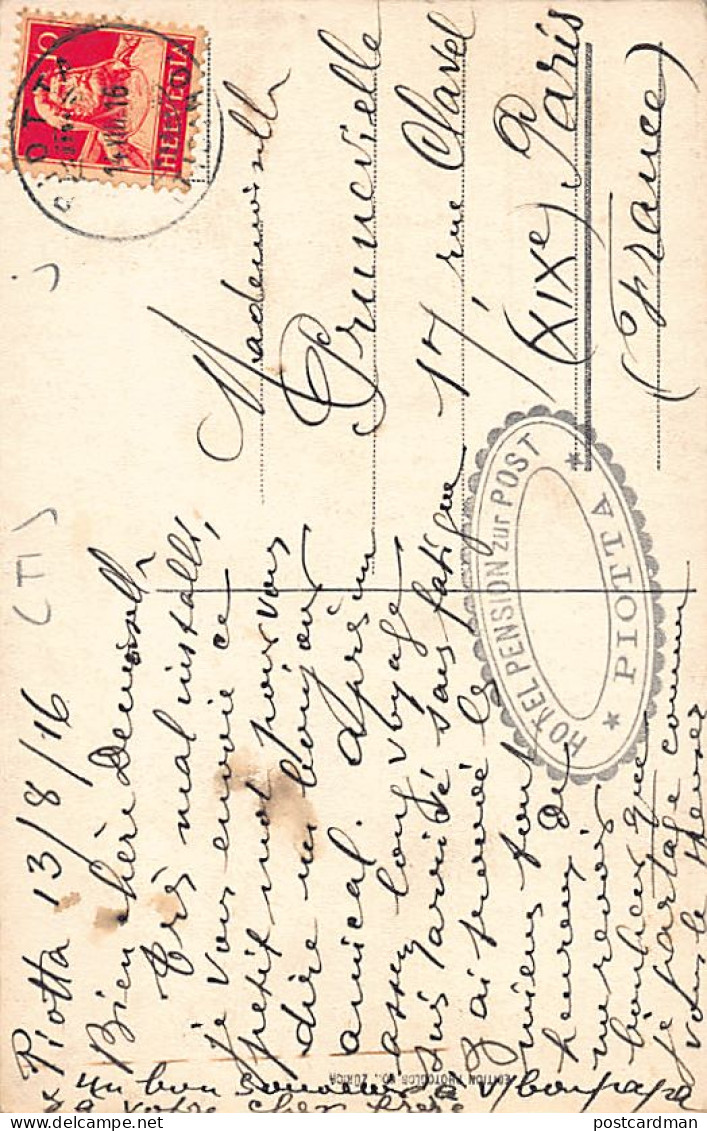 Piotta 13/8/16
Bien chère Demoiselle
Très mal installé,
je vous envoie ce
petit mot pour vous
dire un bonjour
amical. Après un
assez long voyage
suis arrivé sans fatigue
J'ai trouvé les
miens tout
heureux de
me revoir
bonheur que
je partage comme
vous le pensez
Un bon souvenir à v/ bon papa
& à votre cher frère
Mademoiselle
Prunevielle
17, rue Clavel
(XIXe) Paris
(France)
(TI)
10
HELVETIA
PIOTTA
14.VIII.16
HOTEL PENSION zur POST
* PIOTTA *
EDITION PHOTOGLOB CO., ZÜRICH
postcardman